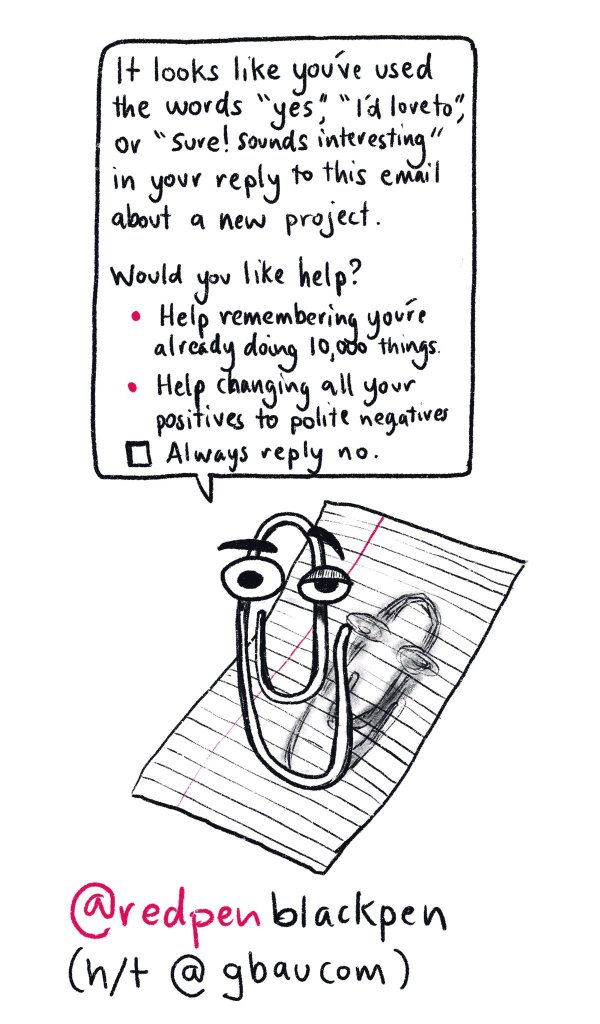 It looks like you've used
the words "yes", "I'd love to",
or "Sure! Sounds interesting"
in your reply to this email
about a new project.
Would you like help?
• Help remembering you're
already doing 10,000 things.
• Help changing all your
positives to polite negatives
☐ Always reply no.
@redpenblackpen
(h/t @gbaucom)